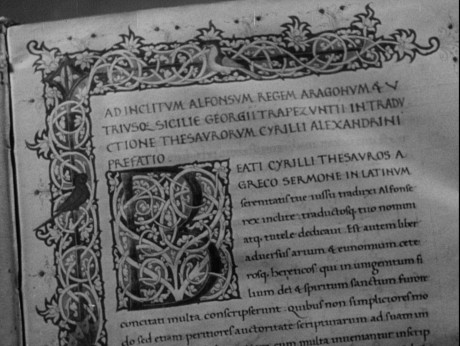 AD INCLITVM ALFONSVM REGEM ARAGONVM & V
TRIVSQ SICILIE GEORGII TRAPEZVNTII IN TRADV
CTIONE THESAVRORVM CYRILLI ALEXANDRINI
PREFATIO.
BEATI CYRILLI THESAVROS A
GRECO SERMONE IN LATINVM
serenitatis tue iussu traduxi Alfonse
rex inclite: traductosq tuo nomini
atq tutele dedicaui. Est autem liber
aduersus arium & eunomium cete
rosq hereticos qui in unigenitum fi
lium dei & spiritum sanctum furore
concitati multa conscripserunt: quibus non simpliciores mo
do sed etiam peritiores auctoritate scripturarum ad suam im
multa inueniantur in scrip